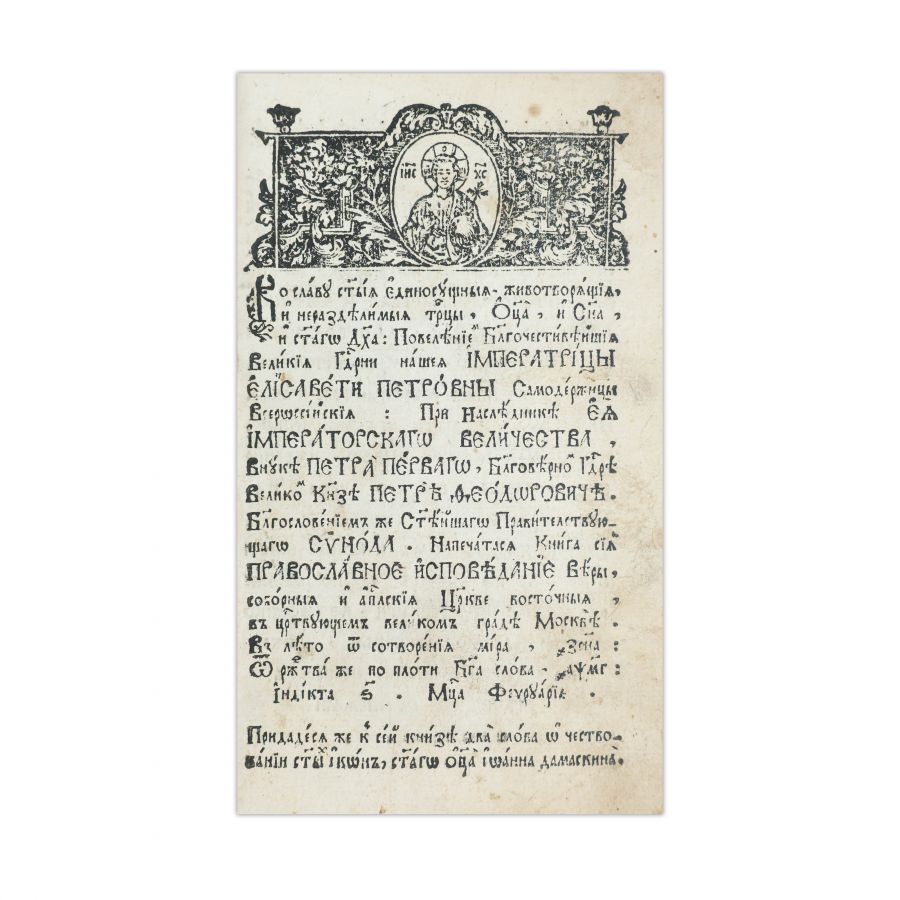 І҆И҃С ХС҃
Во славу ст҃ы́ѧ є҆диносу́щныѧ, животворѧ́щїѧ,
и҆ нераздѣ́лимыѧ трⷪ҇цы, Ѻ҆ц҃а̀, и҆ Сн҃а,
и҆ ст҃а́гѡ Дх҃а: Повелѣ́нїемъ Бл҃гочести́вѣйшїѧ
Вели́кїѧ Гдⷭ҇рни на́шеѧ І҆МПЕРАТРИ́ЦЫ
Є҆ЛІСАВЕ́ТИ ПЕТРО́ВНЫ Самодержицы
Всерѡссі́йскїѧ : При Наслѣ́дникѣ Є҆Ѧ̀
І҆МПЕРА́ТОРСКАГѠ ВЕЛИ́ЧЕСТВА,
Вну́кѣ ПЕТРА̀ ПЕ́РВАГѠ, Бл҃говѣ́рномъ Гдⷭ҇рѣ
Вели́комъ Кнѧ́зѣ ПЕТРѢ̀ Ѳ҆ЕО́ДѠРОВИЧѢ.
Бл҃гослове́нїемъ же Ст҃ѣ́йшагѡ Прави́телствую-
щагѡ СѴНО́ДА. Напеча́тасѧ Кни́га сїѧ̀
ПРАВОСЛА́ВНОЕ И҆СПОВѢ́ДАНЇЕ Вѣ́ры,
собо́рныѧ и҆ а҆пⷭ҇лскїѧ Цр҃кве восто́чныѧ,
въ црⷭ҇твующемъ вели́комъ гра́дѣ Москвѣ̀.
Въ лѣ́то ѿ сотворе́нїѧ мі́ра, ҂зсн҃д:
Ѿ ржⷭ҇тва̀ же по пло́ти Бг҃а сло́ва, ҂аѱм҃г:
І҆нді́кта ѕ҃. Мцⷭ҇а Феѵруа́рїа.
Придаде́сѧ же къ се́й кни́зѣ два̀ сло́ва ѡ҆ чество-
ва́нїи ст҃ы́хъ і҆кѡ́нъ, ст҃а́гѡ ѻ҆ц҃а̀ і҆ѡа́нна дамаски́на.